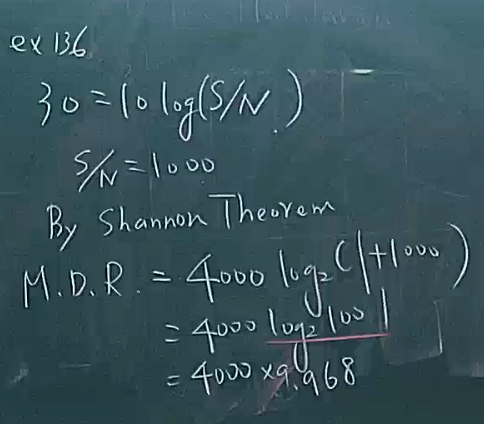 ex 136
30=10 log(S/N.)
S/N=1000
By Shannon Theorem
M.D.R. = 4000 log₂(1+1000)
= 4000 log₂ 1001
= 4000 × 9.968